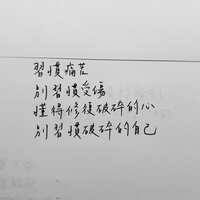 習慣痛苦
別習慣受傷
懂得修復破碎的心
別習慣破碎的自己